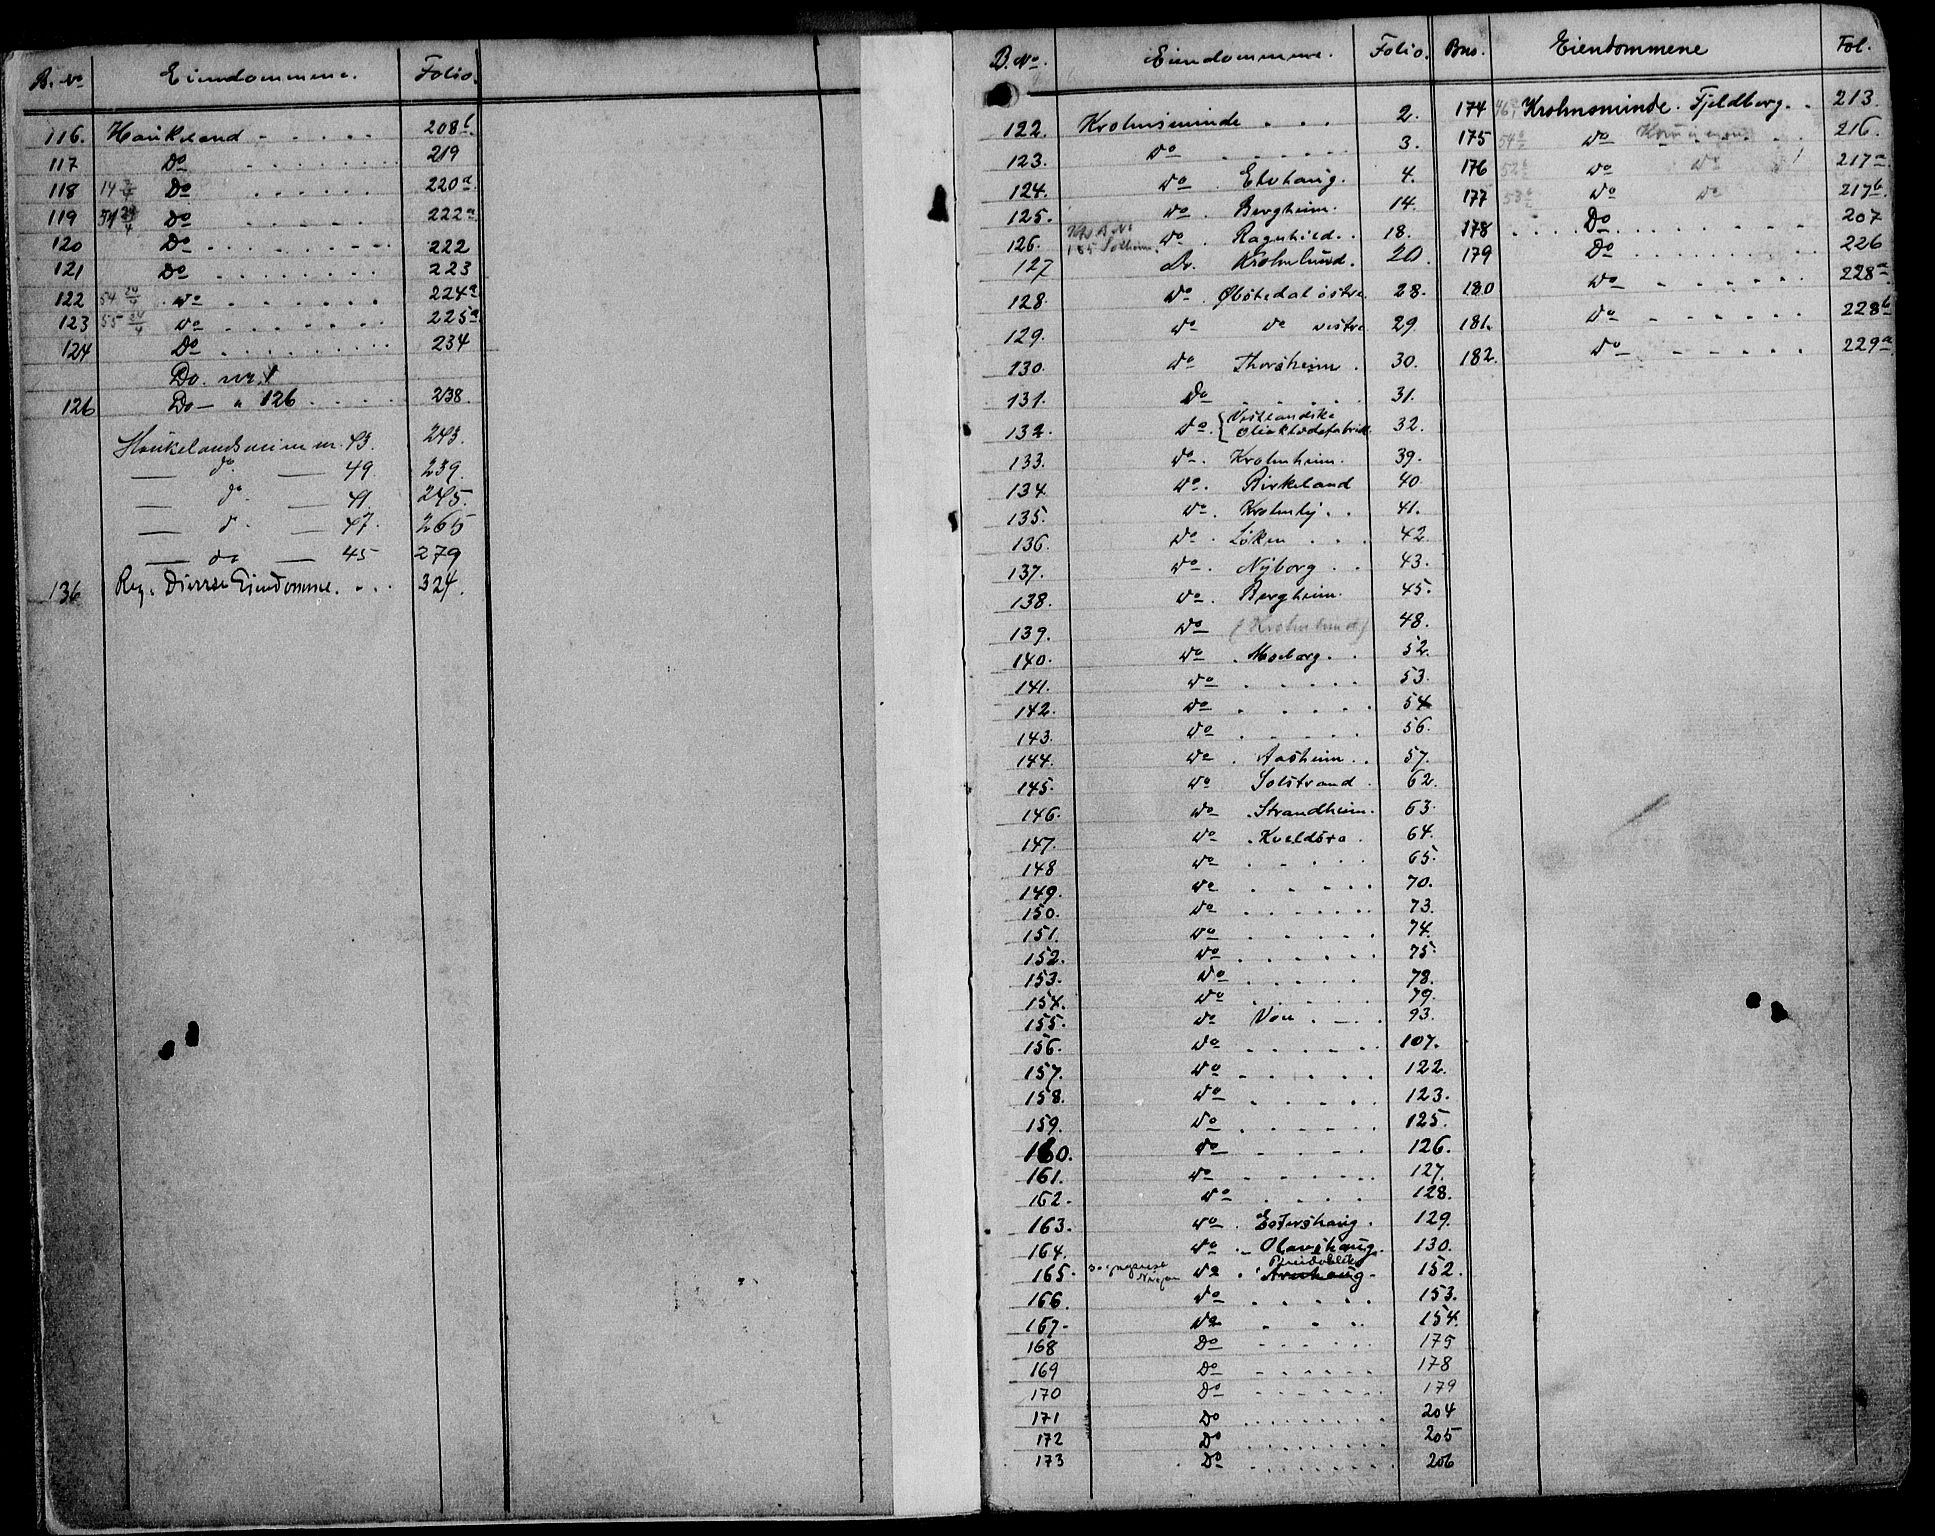 B. No Eiendommene. Folio.
116. Haukeland - . . . . 208b.
117 Do . . . . . . 219
118 14 Do . . . . . . 220a.
119 54 24/4 Do . . . . . . 222a
120 Do . . . . . . . . 222
121 Do . . . . . . . . 223
122 54 24/4 do . . . . . . 224a
123 55 24/4 do . . . . . . 225a
124 Do . . . . . . . . 234
Do. nr. 1
126 Do — " 126 . . . . 238.
Haukelandsveien nr. 43. 243.
— do. — 49 239.
— do. — 41 245.
— d. — 47. 265
— do — 45 279
136 Reg. Diverse Eiendomme. . . . 324.
B. No. Eiendommene. Folio.
122. Krohnsminde . . . 2.
123. do . . . . . . 3.
124. do . Elvhaug. 4.
125. do . Bergheim. 14.
126. 185 Solheim. do . Ragnhild. . 18.
127 do. Krohnlund. 20.
128. do . Øbstedal østre 28.
129. do do vestre 29
130. do Thorsheim . 30.
131. Do . . . . . 31.
132. do. { Vestlandske Blikktodefabrik 32.
133. do. Krohnheim. 39.
134. do. Birkeland 40
135. do. Krohnhøj. . 41.
136. do . Løken . . . 42.
137. do. Nyborg . . 43.
138. do . Bergheim. 45.
139. do (Krohnlund) 48.
140. do . Moeborg. . 52.
141. do . . . . . 53.
142. do . . . . . . 54
143. do . . . . . 56.
144. do . Aasheim . . 57.
145. do Solstrand . 62.
146. do . Strandheim. 63.
147. do . Kveldsro . 64.
148 do . . . . . 65.
149. do . . . . . 70.
150. do . . . . . . 73.
151. do . . . . . . 74.
152. do . . . . . . 75.
153. do . . . . . . 78.
154. do . . . . . . 79.
155. do Von . . . . 93.
156. do . . . . . . 107.
157. do . . . . . . 122.
158. do . . . . . . 123.
159. do . . . . . . 125.
160. do . . . . . 126.
161. do . . . . . . 127.
162. do . . . . . 128.
163. do . Estershaug . 129.
164. do . Olavshaug. 130.
165. do . Arnhaug . 152.
166. do . . . . . 153.
167. do . . . . 154.
168 Do . . . . . 175
169 Do . . . . . . 178
170 Do . . . . . . 179
171 Do . . . . . . 204
172 Do . . . . . . 205
173 Do . . . . . . 206
Bno. Eiendommene Fol.
174 Krohnsminde. Fjeldberg. . 213.
175 54 do . . . 216.
176 52 do do 217a
177 53 do do 217b
178 . . . . Do . . . . . . 207
179 Do . . . . . . . . 226
180 do . . . . . . 228a
181. do . . . . . . 228b
182. do . . . . . . 229a